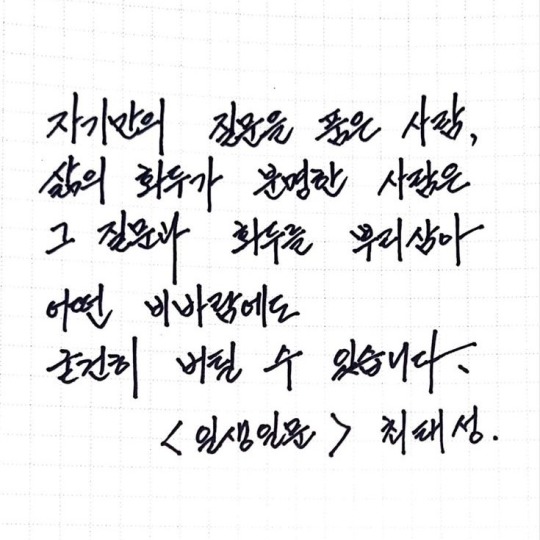 자기만의 질문을 품은 사람,
삶의 화두가 분명한 사람은
그 질문과 화두를 뿌리삼아
어떤 비바람에도
굳건히 버틸 수 있습니다.
<인생인문> 최태성.